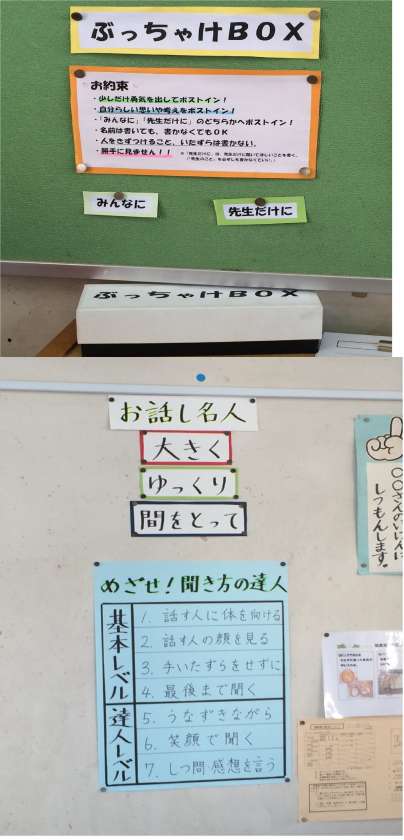 ぶっちゃけBOX
お約束
・少しだけ勇気を出してポストイン!
・自分らしい思いや考えをポストイン!
・「みんなに」「先生だけに」のどちらかへポストイン!
・名前は書いても、書かなくてもOK
・人をきずつけること、いたずらは書かない。
・勝手に見ません!!
みんなに
先生だけに
ぶっちゃけBOX
お話し名人
大きく
ゆっくり
間をとって
〇〇さんのいけんに
しつもんします。
めざせ!聞き方の達人
基本レベル
1. 話す人に体を向ける
2. 話す人の顔を見る
3. 手いたずらをせずに
4. 最後まで聞く
達人レベル
5. うなずきながら
6. 笑顔で聞く
7. しつ問 感想を言う